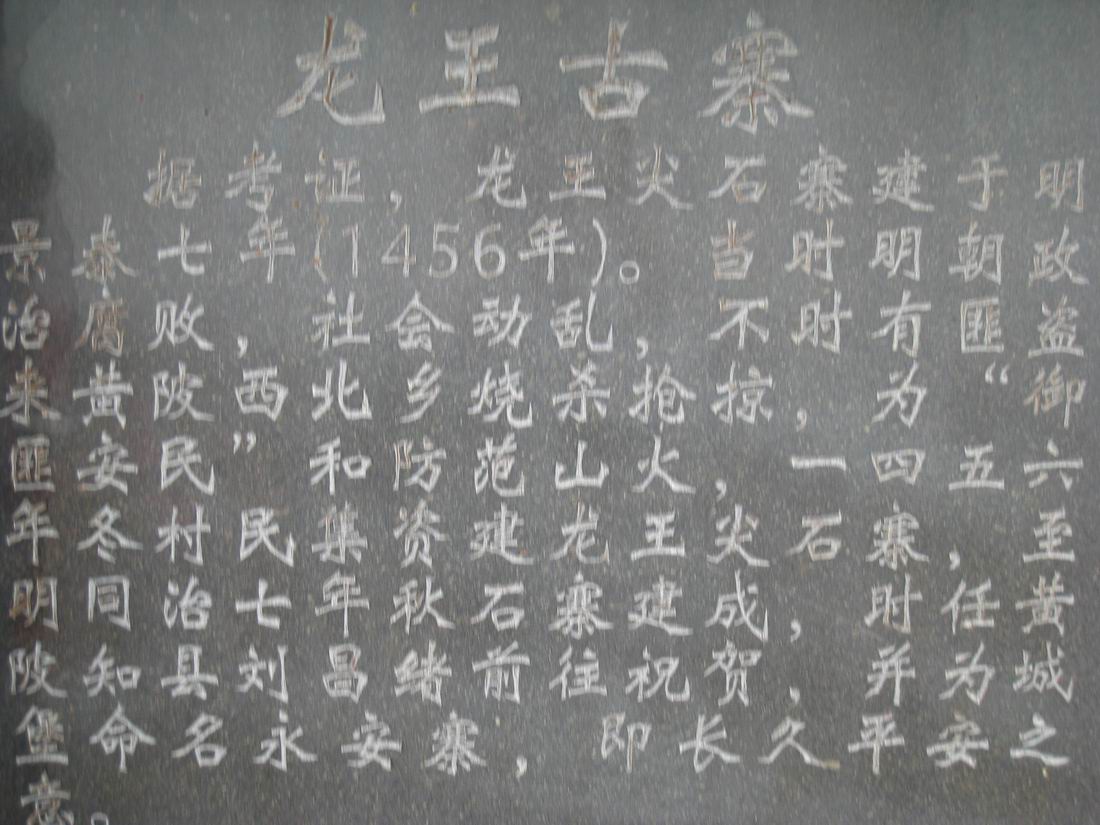 龙王古寨
据考证，龙王尖石寨建于明
景泰七年(1456年)。当时明朝政
治腐败，社会动乱，不时有匪盗
来黄陂西北乡烧杀抢掠，为“御
匪安民”和防范山火，一四五六
年冬村民集资建龙王尖石寨，至
明同治七年秋石寨建成，时任黄
陂知县刘昌绪前往祝贺，并为城
堡命名永安寨，即长久平安之
意。